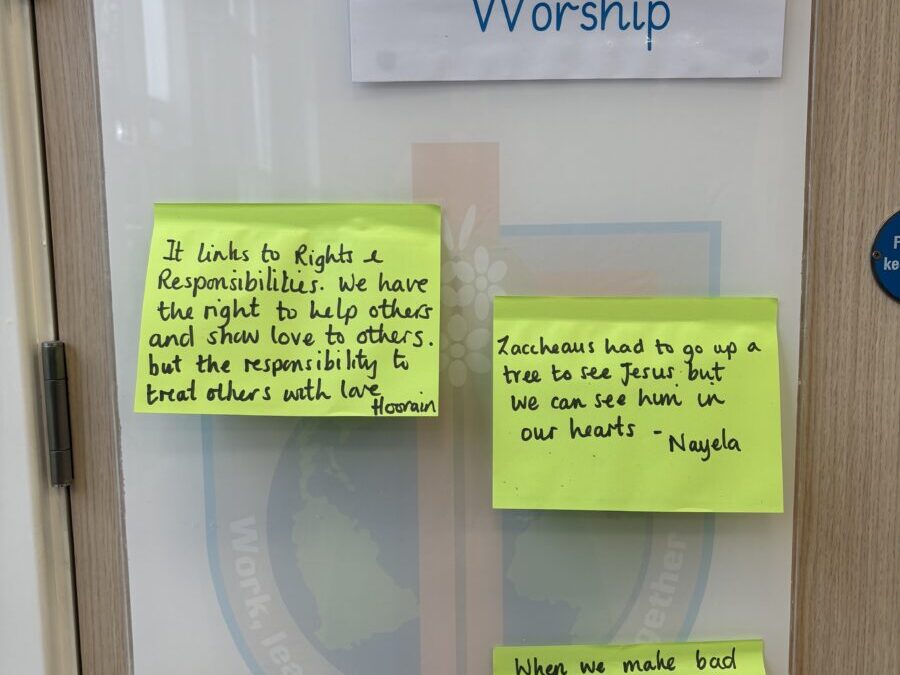 Worship
It links to Rights &
Responsibilities. We have
the right to help others
and show love to others.
but the responsibility to
treat others with love
Hoorain
Zaccheaus had to go up a
tree to see Jesus but
we can see him in
our hearts -
Nayela
When we make bad
Work, lea
gether
F
ke